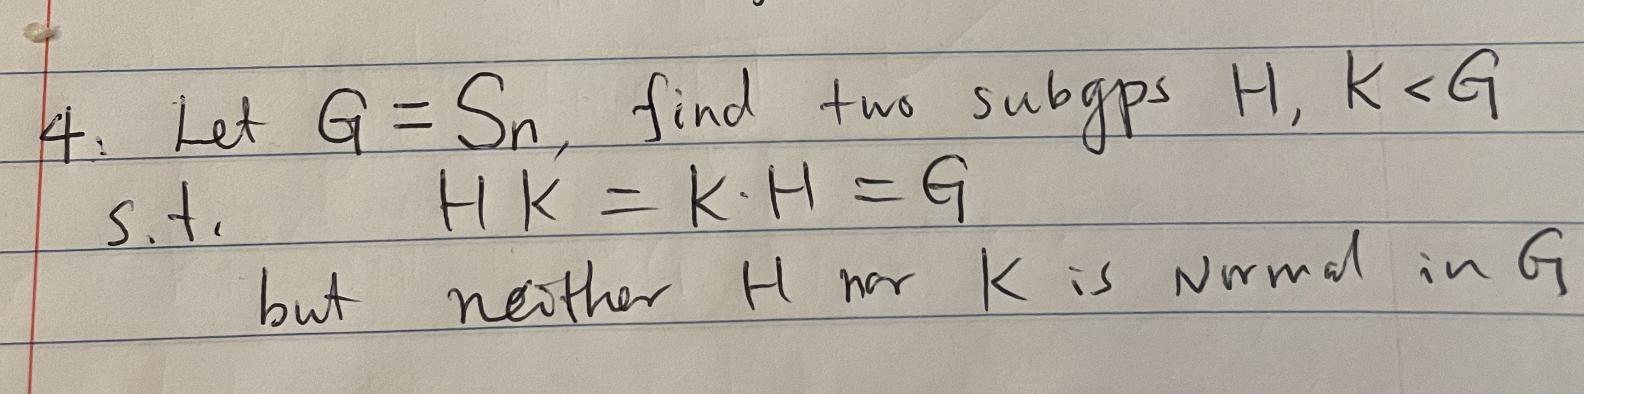 4. Let G = Sn, find two subgps H, K < G
s.t. H K = K · H = G
but neither H nor K is Normal in G